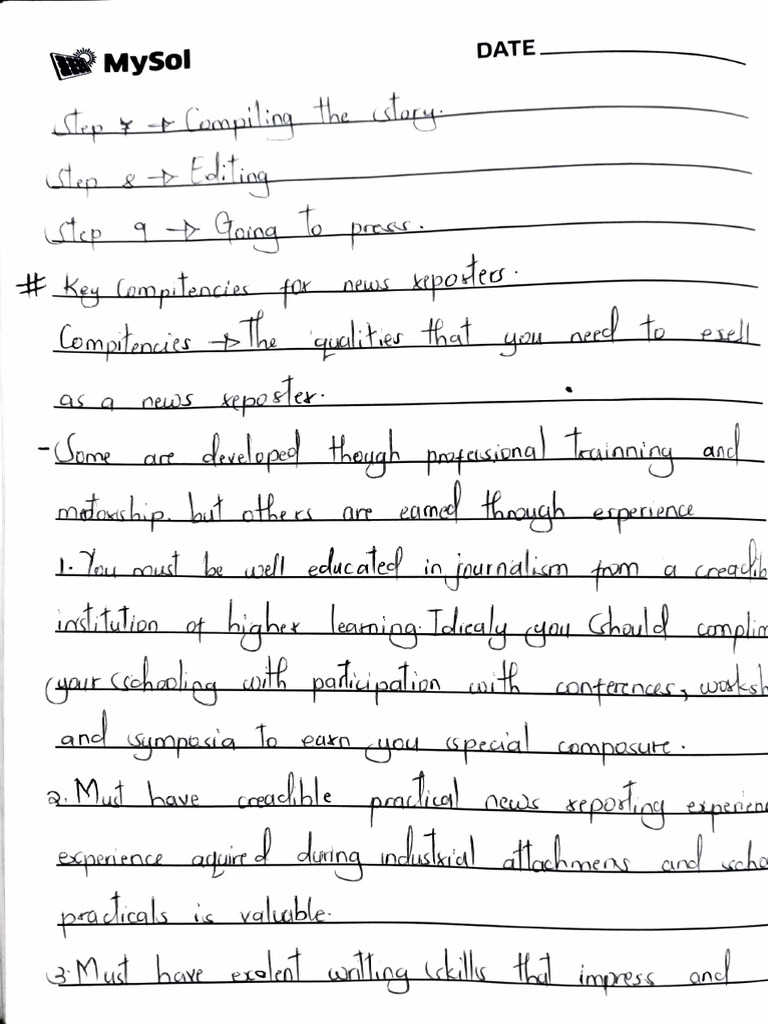 MySol
DATE
Step 7 → Compiling the story.
Step 8 → Editing
Step 9 → Going to press.
# Key Compitencies for news reporters.
Compitencies → The qualities that you need to exell
as a news reporter.
- Some are developed though professional trainning and
but others are earned through experience
1. You must be well educated in journalism from a creadib
institution of higher learning. Idiealy you should complim
your schooling with participation with conferences, worksh
and symposia to earn you special composure.
2. Must have creadible practical news reporting experienc
experience aquired during industrial attachmens and scho
practicals is valuable.
3. Must have exelent writting skills that impress and